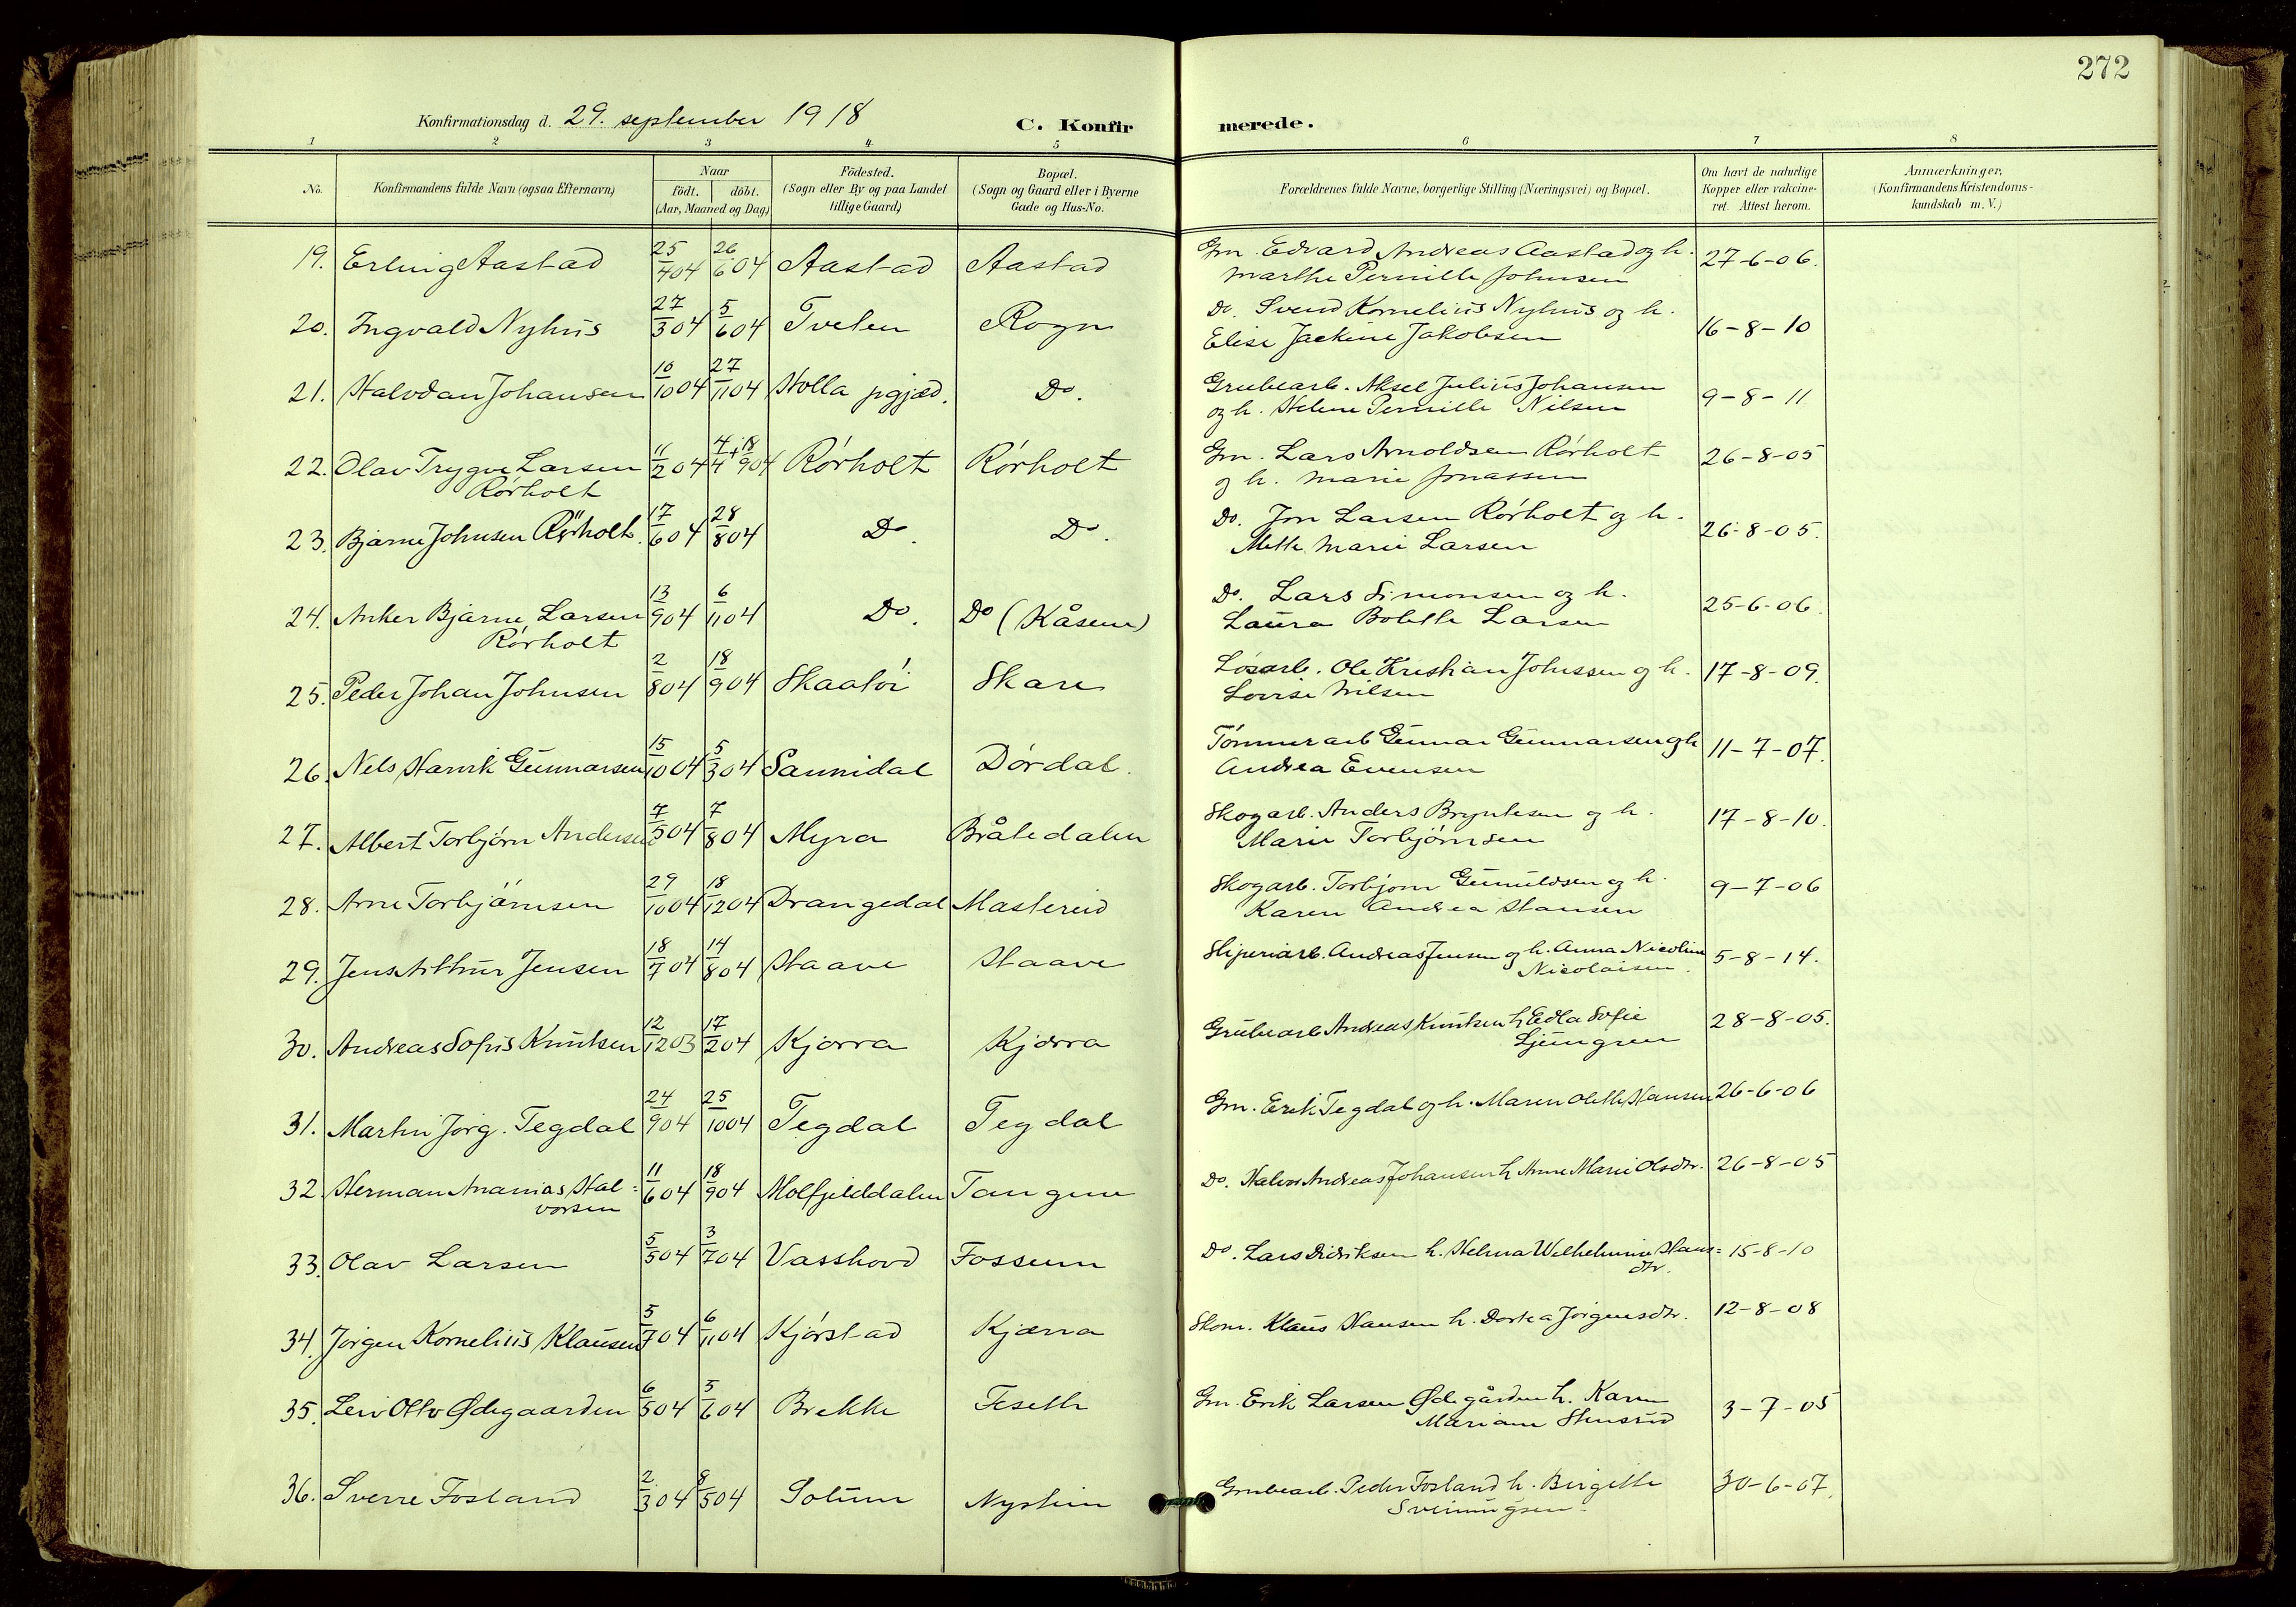 272
Konfirmationsdag d. 29. september 1918
C. Konfir merede.
1 2 3 4 5 6 7 8
No. Konfirmandens fulde Navn (ogsaa Efternavn) Naar födt. döbt. (Aar, Maaned og Dag) Födested. (Sogn eller By og paa Landet tillige Gaard) Bopæl. (Sogn og Gaard eller i Byerne Gade og Hus-No. Forældrenes fulde Navne, borgerlige Stilling (Næringsvei) og Bopæl. Om havt de naturlige Kopper eller vakcineret. Attest herom. Anmærkninger. (Konfirmandens Kristendomskundskab m. V.)
19. Erling Aastad 25/4 04 26/6 04 Aastad Aastad Gm. Edvard Andreas Aastad og h. Marthe Pernille Johnsen 27-6-06.
20. Ingvald Nyhus 27/3 04 5/6 04 Tveten Rogn Do. Svend Kornelius Nyhus og h. Elise Jackine Jakobsen 16-8-10
21. Halvdan Johansen 10/10 04 27/11 04 Holla prgjæd. Do. Grubearb. Aksel Julius Johansen og h. Helene Pernille Nilsen 9-8-11
22. Olav Trygve Larsen Rörholt 11/2 04 4/4 + 18/9 04 Rörholt Rörholt Gm. Lars Arnoldsen Rörholt og h. Marie Jonassen 26-8-05
23. Bjarne Johnsen Rörholt. 17/6 04 28/8 04 Do. Do. Do. Jon Larsen Rörholt og h. Mette Marie Larsen 26-8-05.
24. Anker Bjarne Larsen Rörholt 13/9 04 6/11 04 Do. Do (Kåsene) Do. Lars Simonsen og h. Laura Bolette Larsen 25-6-06.
25. Peder Johan Johnsen 2/8 04 18/9 04 Skaatöi Skare Lösarb. Ole Kristian Johnssen og h. Lovise Nilsen 17-8-09.
26. Nels Henrik Gunnarsen 15/10 04 5/3 04 Sannidal Dördal. Tömmerarb Gunnar Gunnarsen og h Andrea Evensen 11-7-07.
27. Albert Torbjörn Andersen 7/5 04 7/8 04 Myra Bråtedalen Skogarb. Anders Bryntesen og h. Marie Torbjörnsen 17-8-10.
28. Arne Torbjörnsen 29/10 04 18/12 04 Drangedal Mastereid Skogarb. Torbjorn Gunuldsen og h. Karen Andrea Hansen 9-7-06
29. Jens Arthur Jensen 18/7 04 14/8 04 Haave Haave Sliperiarb. Andreas Jensen og h. Anna Nicoline Nicolaisen. 5-8-14.
30. Andreas Sofus Knutsen 12/12 03 17/2 04 Kjærra Kjærra Grubearb Andreas Knutsen h Edla Sofie Ljungren 28-8-05.
31. Martin Jörg. Tegdal 24/9 04 25/10 04 Tegdal Tegdal Gm. Erik Tegdal og h. Maren Olette Hansen 26-6-06
32. Herman Ananias Halvorsen 11/6 04 18/9 04 Molfjelddalen Tangene Do. Halvor Andreas Johansen h Anne Marie Olsdtr. 26-8-05
33. Olav Larsen 5/5 04 3/7 04 Vasshovd Fossum Do. Lars Didriksen h. Helena Wilhelmine Hansdtr. 15-8-10
34. Jörgen Kornelius Klausen 5/7 04 6/11 04 Kjörstad Kjærra Skom. Klaus Hansen h. Dortea Jörgensdtr. 12-8-08
35. Leiv Otto Ødegaarden 6/5 04 5/6 04 Brekke Feseth Gm. Erik Larsen Ødegården h. Karen Mariane Stensrud 3-7-05
36. Sverre Fosland 2/3 04 8/5 04 Solum Nystein Grubearb. Peder Fosland h. Birgitte Sveinugsen 30-6-07.